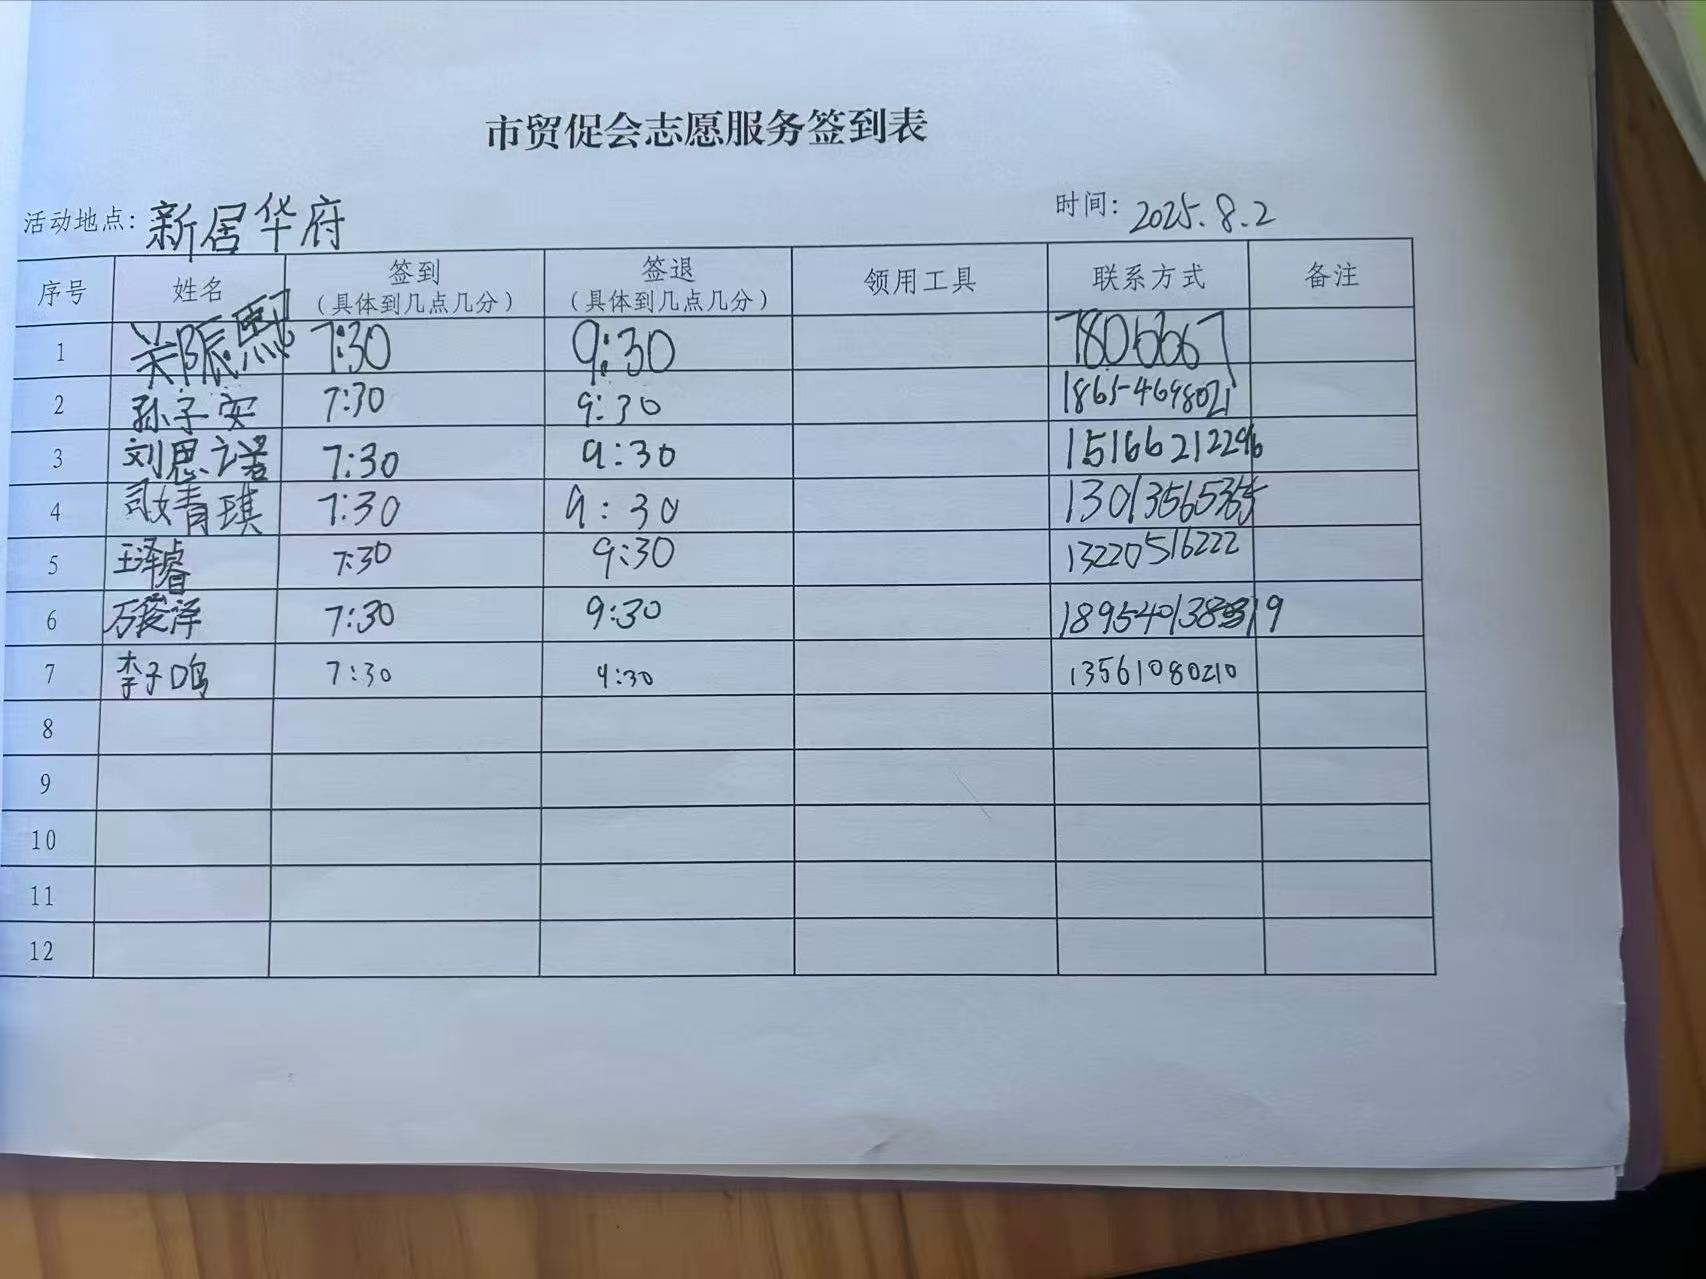 市贸促会志愿服务签到表
活动地点: 新居华府 时间: 2025.8.2
序号 姓名 签到 (具体到几点几分) 签退 (具体到几点几分) 领用工具 联系方式 备注
1 7:30 9:30 7806667
2 孙子安 7:30 9:30 1865-4698021
3 刘思诺 7:30 9:30 15166212296
4 司婧琪 7:30 9:30 13013565365
5 王泽睿 7:30 9:30 13220516222
6 万俊泽 7:30 9:30
7 李子鸣 7:30 9:30 13561080210
8
9
10
11
12